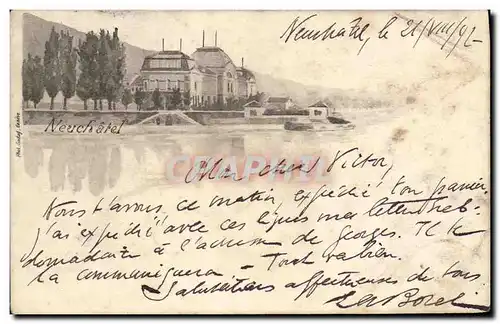 Neuchâtel, le 21/VIII/97
Neuchâtel
Mon cher Victor,
Nous t'avons, ce matin, expédié ton panier
J'ai expédié avec ces lignes ma lettre heb-
domadaire à l'adresse de Georges. Il te
la communiquera — Tout va bien.
Salutations affectueuses de tous